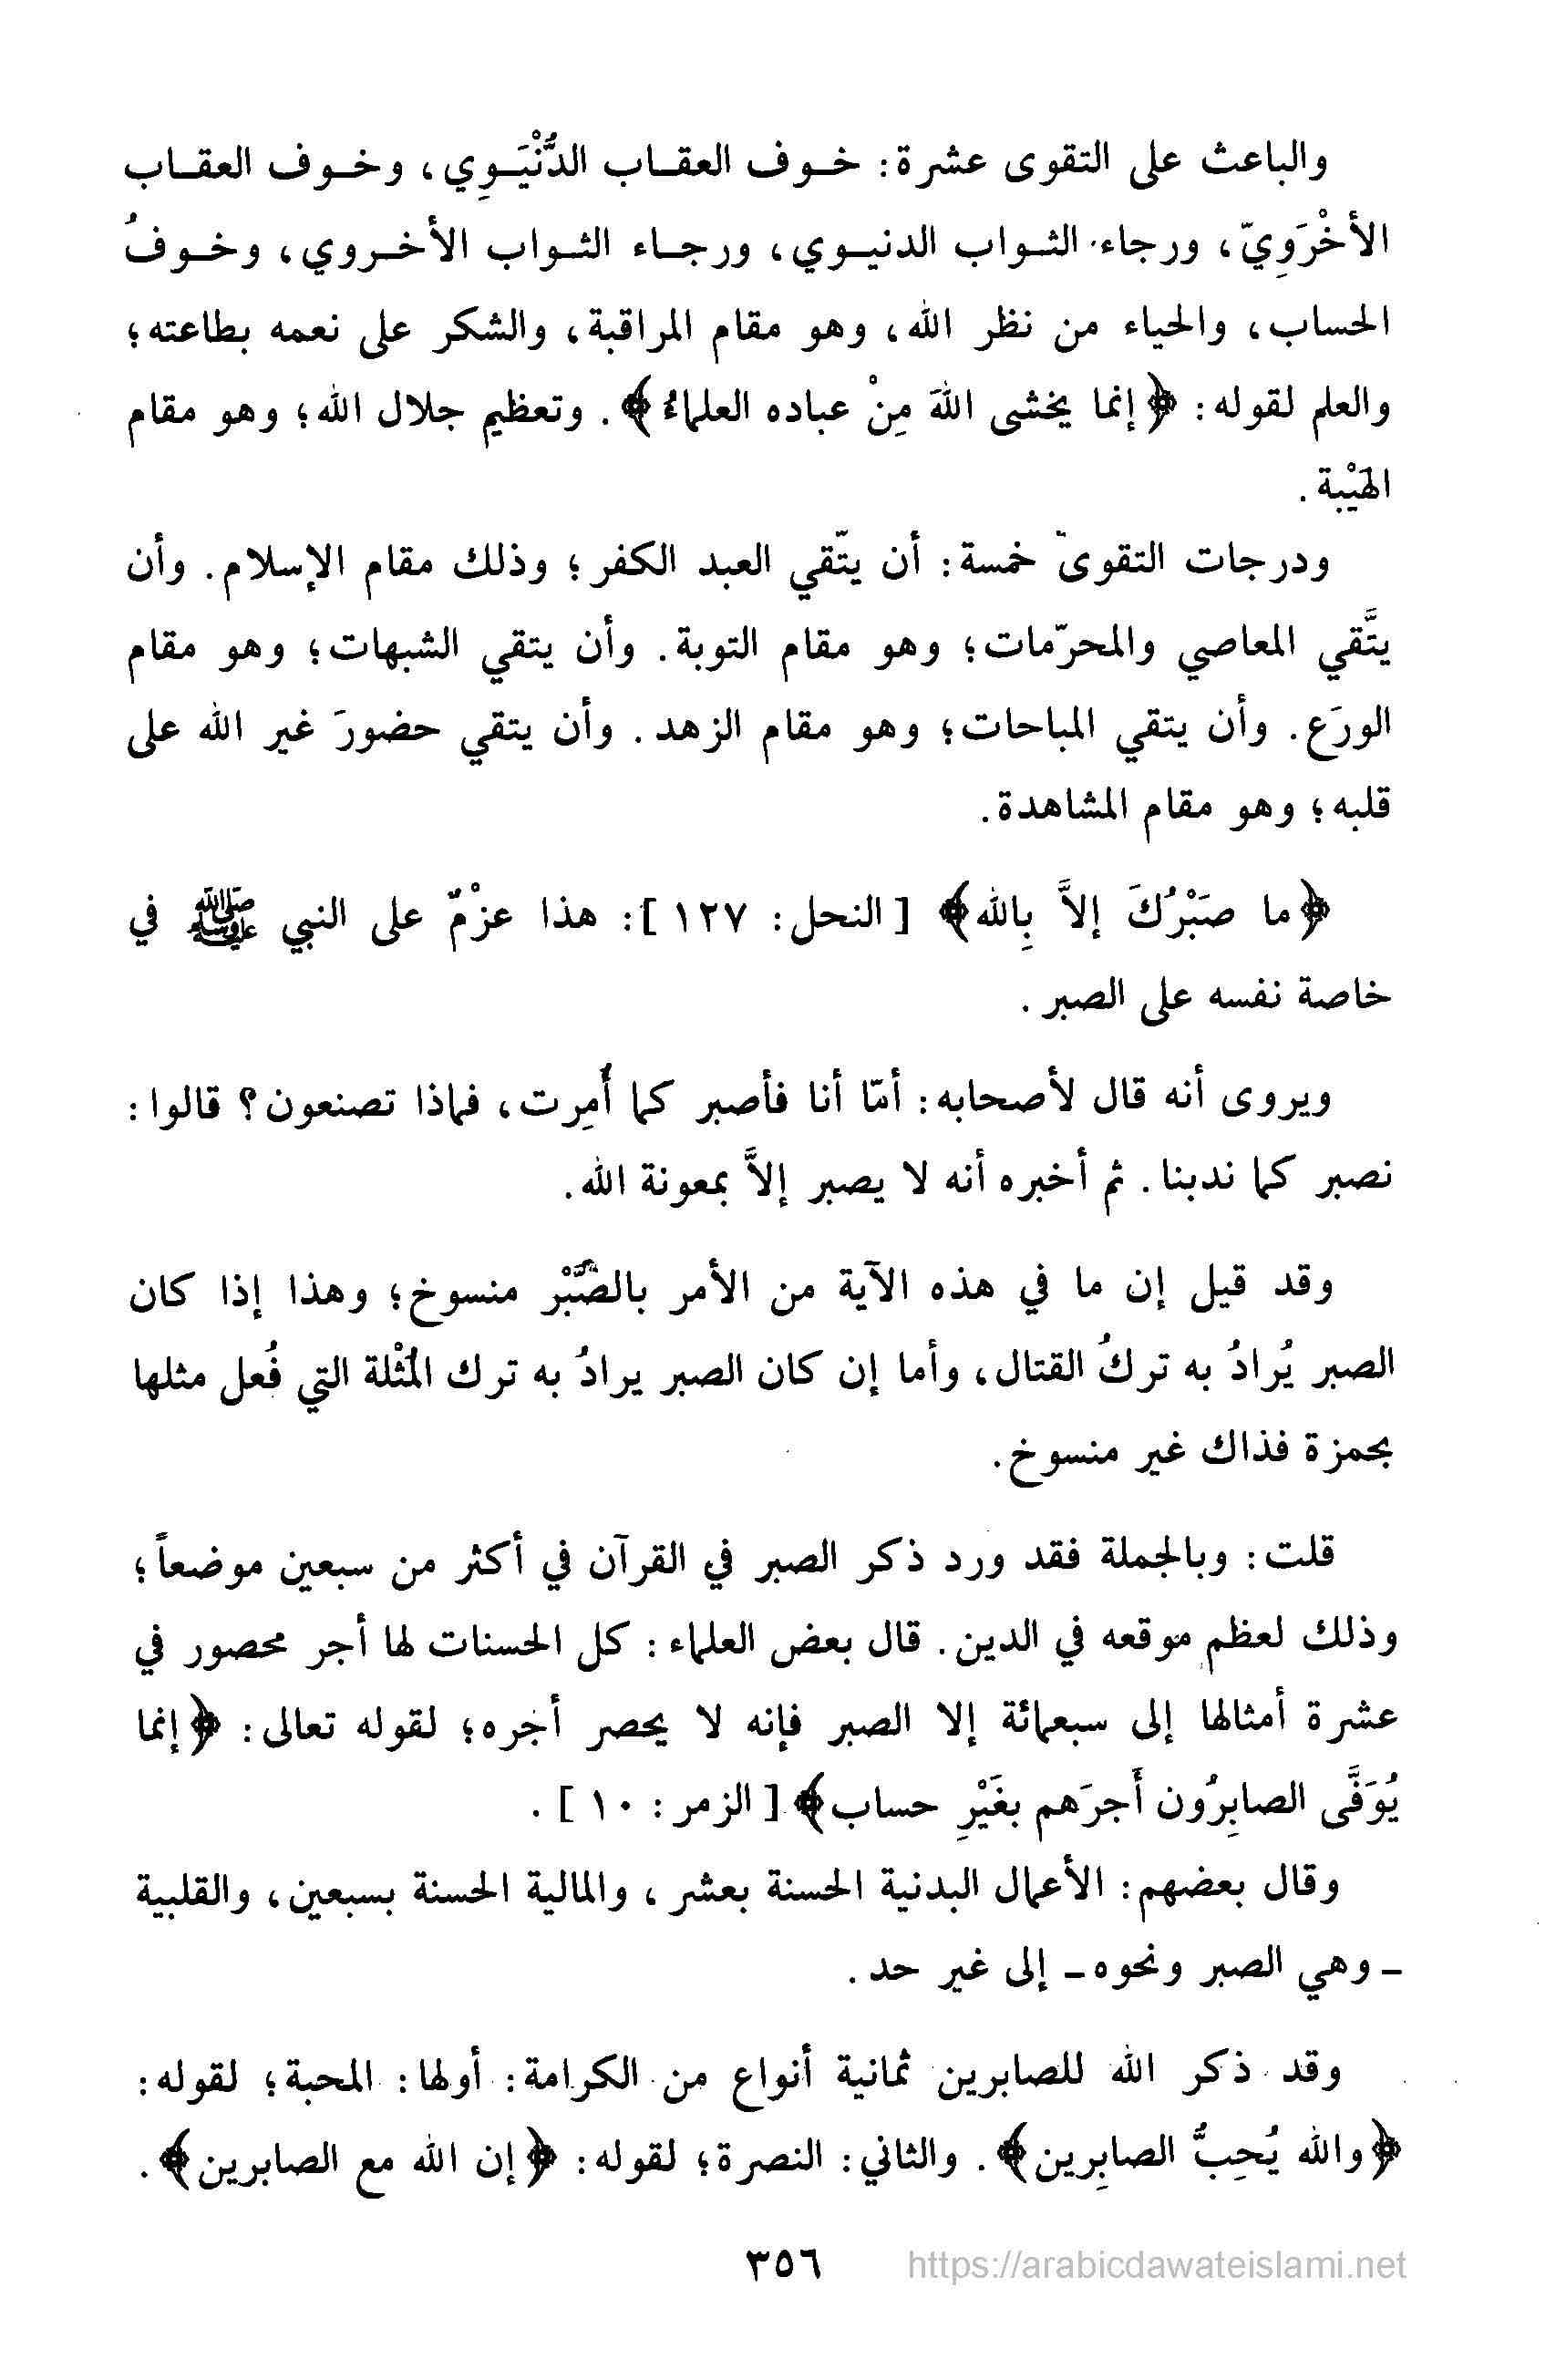 والباعث على التقوى عشرة: خـوف العقـاب الدُّنْيَـوِي، وخـوف العقـاب
الأخْرَوِيّ، ورجاء الثـواب الدنيـوي، ورجـاء الثـواب الأخـروي، وخـوفُ
الحساب، والحياء من نظر الله، وهو مقام المراقبة، والشكر على نعمه بطاعته؛
والعلم لقوله: ﴿إنما يخشى اللهَ مِنْ عباده العلماءُ﴾. وتعظيم جلال الله؛ وهو مقام
الهَيْبة.
ودرجات التقوى خمسة: أن يتّقي العبد الكفر؛ وذلك مقام الإسلام. وأن
يتَّقي المعاصي والمحرّمات؛ وهو مقام التوبة. وأن يتقي الشبهات؛ وهو مقام
الورَع. وأن يتقي المباحات؛ وهو مقام الزهد. وأن يتقي حضورَ غير الله على
قلبه؛ وهو مقام المشاهدة.
﴿ما صَبْرُكَ إلاَّ بِالله﴾ [النحل: ١٢٧]: هذا عزْمٌ على النبي ﷺ في
خاصة نفسه على الصبر.
ويروى أنه قال لأصحابه: أمّا أنا فأصبر كما أُمِرت، فماذا تصنعون؟ قالوا:
نصبر كما ندبنا. ثم أخبره أنه لا يصبر إلاَّ بمعونة الله.
وقد قيل إن ما في هذه الآية من الأمر بالصَّبْر منسوخ؛ وهذا إذا كان
الصبر يُرادُ به تركُ القتال، وأما إن كان الصبر يرادُ به ترك المُثْلة التي فُعل مثلها
بحمزة فذاك غير منسوخ.
قلت: وبالجملة فقد ورد ذكر الصبر في القرآن في أكثر من سبعين موضعاً؛
وذلك لعظم موقعه في الدين. قال بعض العلماء: كل الحسنات لها أجر محصور في
عشرة أمثالها إلى سبعمائة إلا الصبر فإنه لا يحصر أجره؛ لقوله تعالى: ﴿إنما
يُوَفَّى الصابِرُون أَجرَهم بغَيْرِ حساب﴾ [الزمر: ١٠].
وقال بعضهم: الأعمال البدنية الحسنة بعشر، والمالية الحسنة بسبعين، والقلبية
ـ وهي الصبر ونحوه ـ إلى غير حد.
وقد ذكر الله للصابرين ثمانية أنواع من الكرامة: أولها: المحبة؛ لقوله:
﴿والله يُحِبُّ الصابِرين﴾. والثاني: النصرة؛ لقوله: ﴿إن الله مع الصابرين﴾.
٣٥٦
https://arabicdawateislami.net